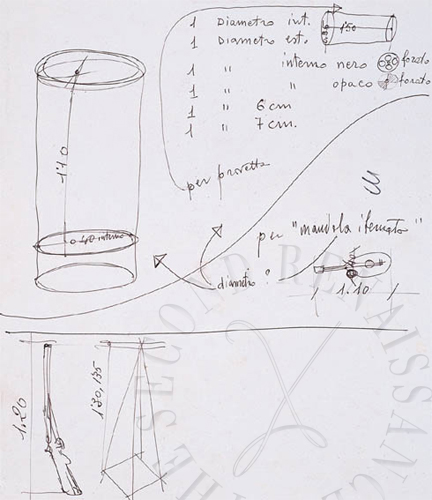 1 Diametro int. 150
1 Diametro est.
1 " interno nero forato
1 " " opaco forato
1 " 6 cm
1 " 7 cm.
per provetta
170
ø 40 interno
per "mandola
diametro?
1.10
1.20
130,135
THE SECOND RENAISSANCE